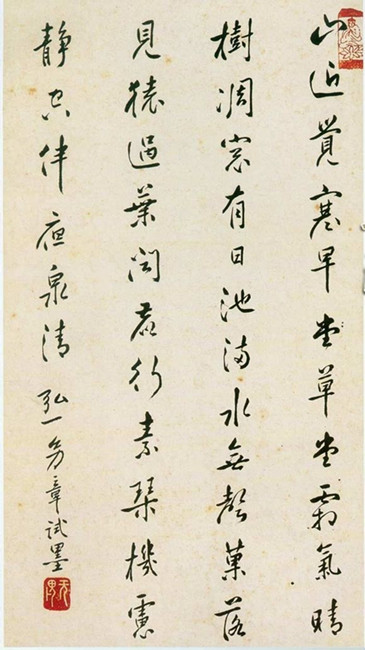 山近覺寒早堂草堂霜氣晴
樹凋窗有日池滿水無聲菓落
見猿過葉聞鹿行素琴機慮
靜空伴夜泉清 弘一章試墨